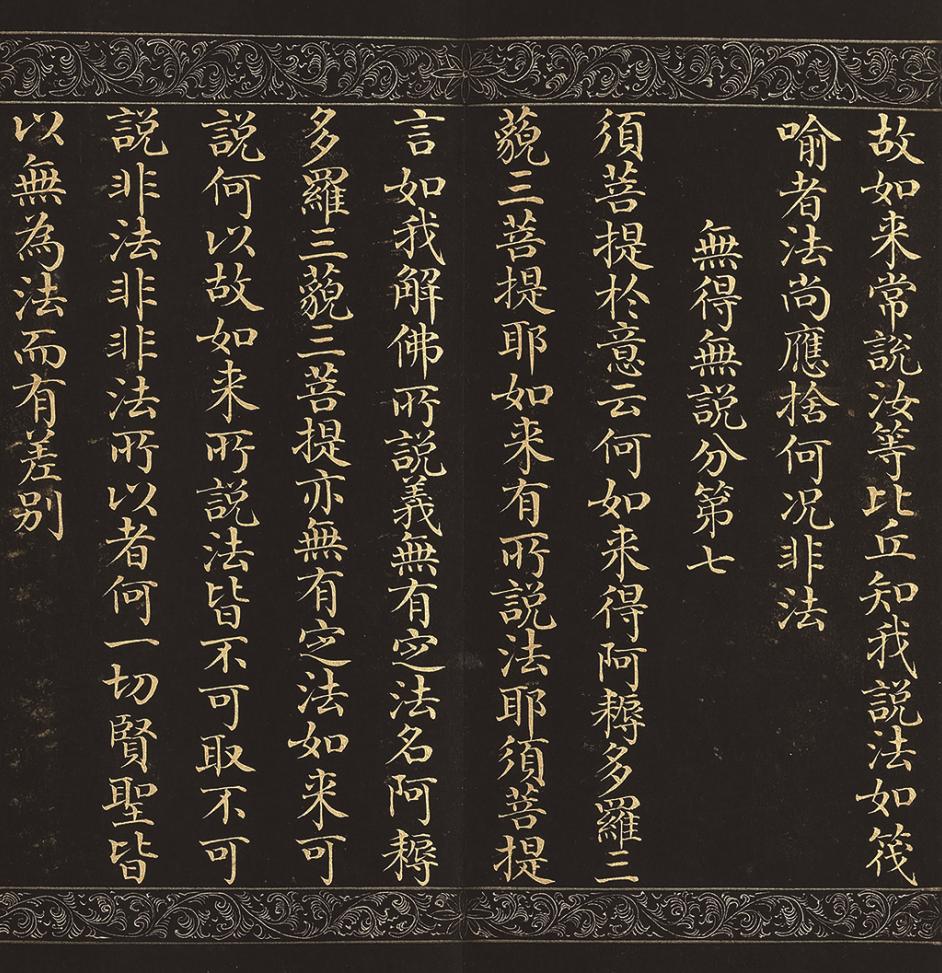 故如来常說汝等比丘知我説法如筏
喻者法尚應捨何况非法
無得無説分第七
須菩提於意云何如来得阿耨多羅三
藐三菩提耶如来有所説法耶須菩提
言如我解佛所説義無有定法名阿耨
多羅三藐三菩提亦無有定法如来可
説何以故如来所説法皆不可取不可
説非法非非法所以者何一切賢聖皆
以無為法而有差别